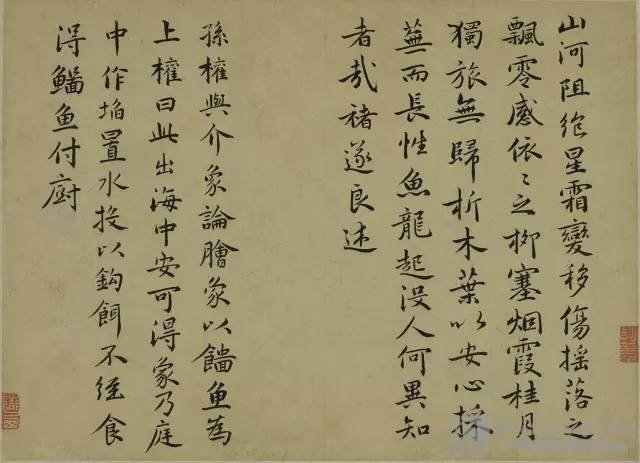 山河阻絶星霜變移傷摇落之
飄零感依〻之柳塞烟霞桂月
獨旅無歸析木葉以安心採
蕪而長性魚龍起没人何異知
者哉褚遂良述
孫權與介象論膾象以鯔魚為
上權曰此出海中安可得象乃庭
中作埳置水投以鈎餌不經食
得鯔魚付厨